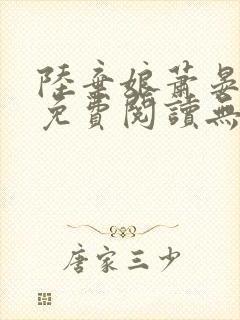 陸棄娘蕭晏
免費閱讀無
唐家三少